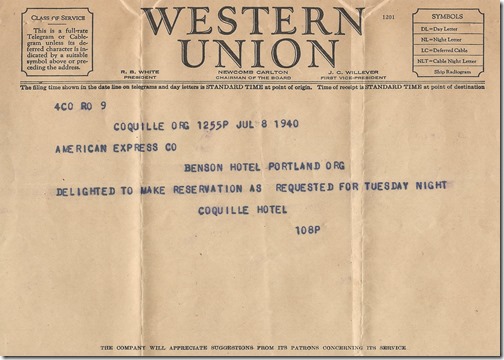 CLASS OF SERVICE
This is a full-rate
Telegram or Cable-
gram unless its de-
ferred character is
indicated by a suitable
symbol above or pre-
ceding the address.
WESTERN
UNION
1201
SYMBOLS
DL=Day Letter
NL=Night Letter
LC=Deferred Cable
NLT=Cable Night Letter
Ship Radiogram
R. B. WHITE
PRESIDENT
NEWCOMB CARLTON
CHAIRMAN OF THE BOARD
J. C. WILLEVER
FIRST VICE-PRESIDENT
The filing time shown in the date line on telegrams and day letters is STANDARD TIME at point of origin. Time of receipt is STANDARD TIME at point of destination
4CO RO 9
COQUILLE ORG 1255P JUL 8 1940
AMERICAN EXPRESS CO
BENSON HOTEL PORTLAND ORG
DELIGHTED TO MAKE RESERVATION AS REQUESTED FOR TUESDAY NIGHT
COQUILLE HOTEL
108P
THE COMPANY WILL APPRECIATE SUGGESTIONS FROM ITS PATRONS CONCERNING ITS SERVICE